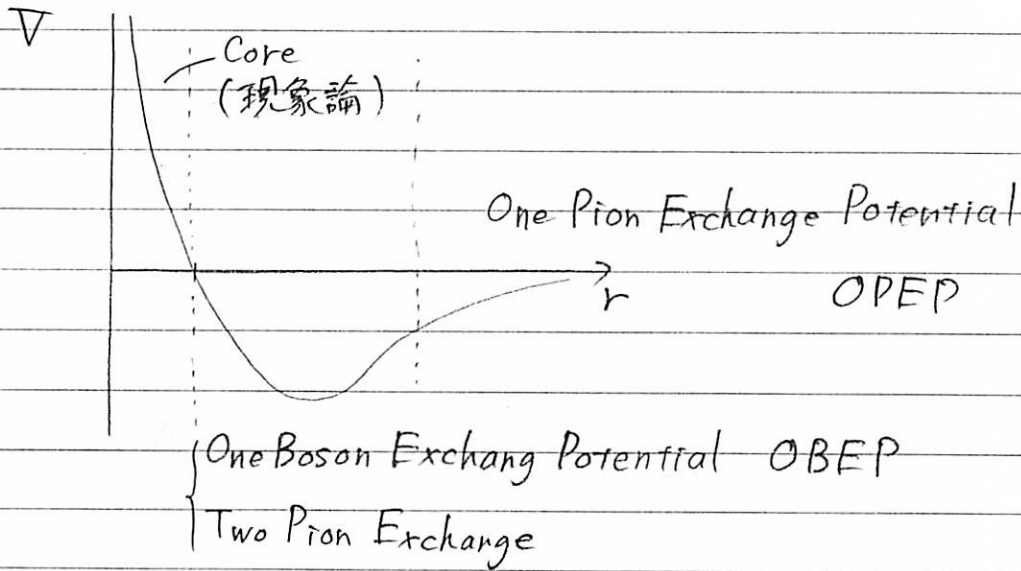 V
Core
(現象論)
One Pion Exchange Potential
r
OPEP
One Boson Exchang Potential OBEP
Two Pion Exchange